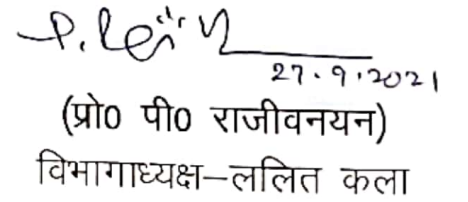 27.9.2021
(प्रो0 पी0 राजीवनयन)
विभागाध्यक्ष–ललित कला